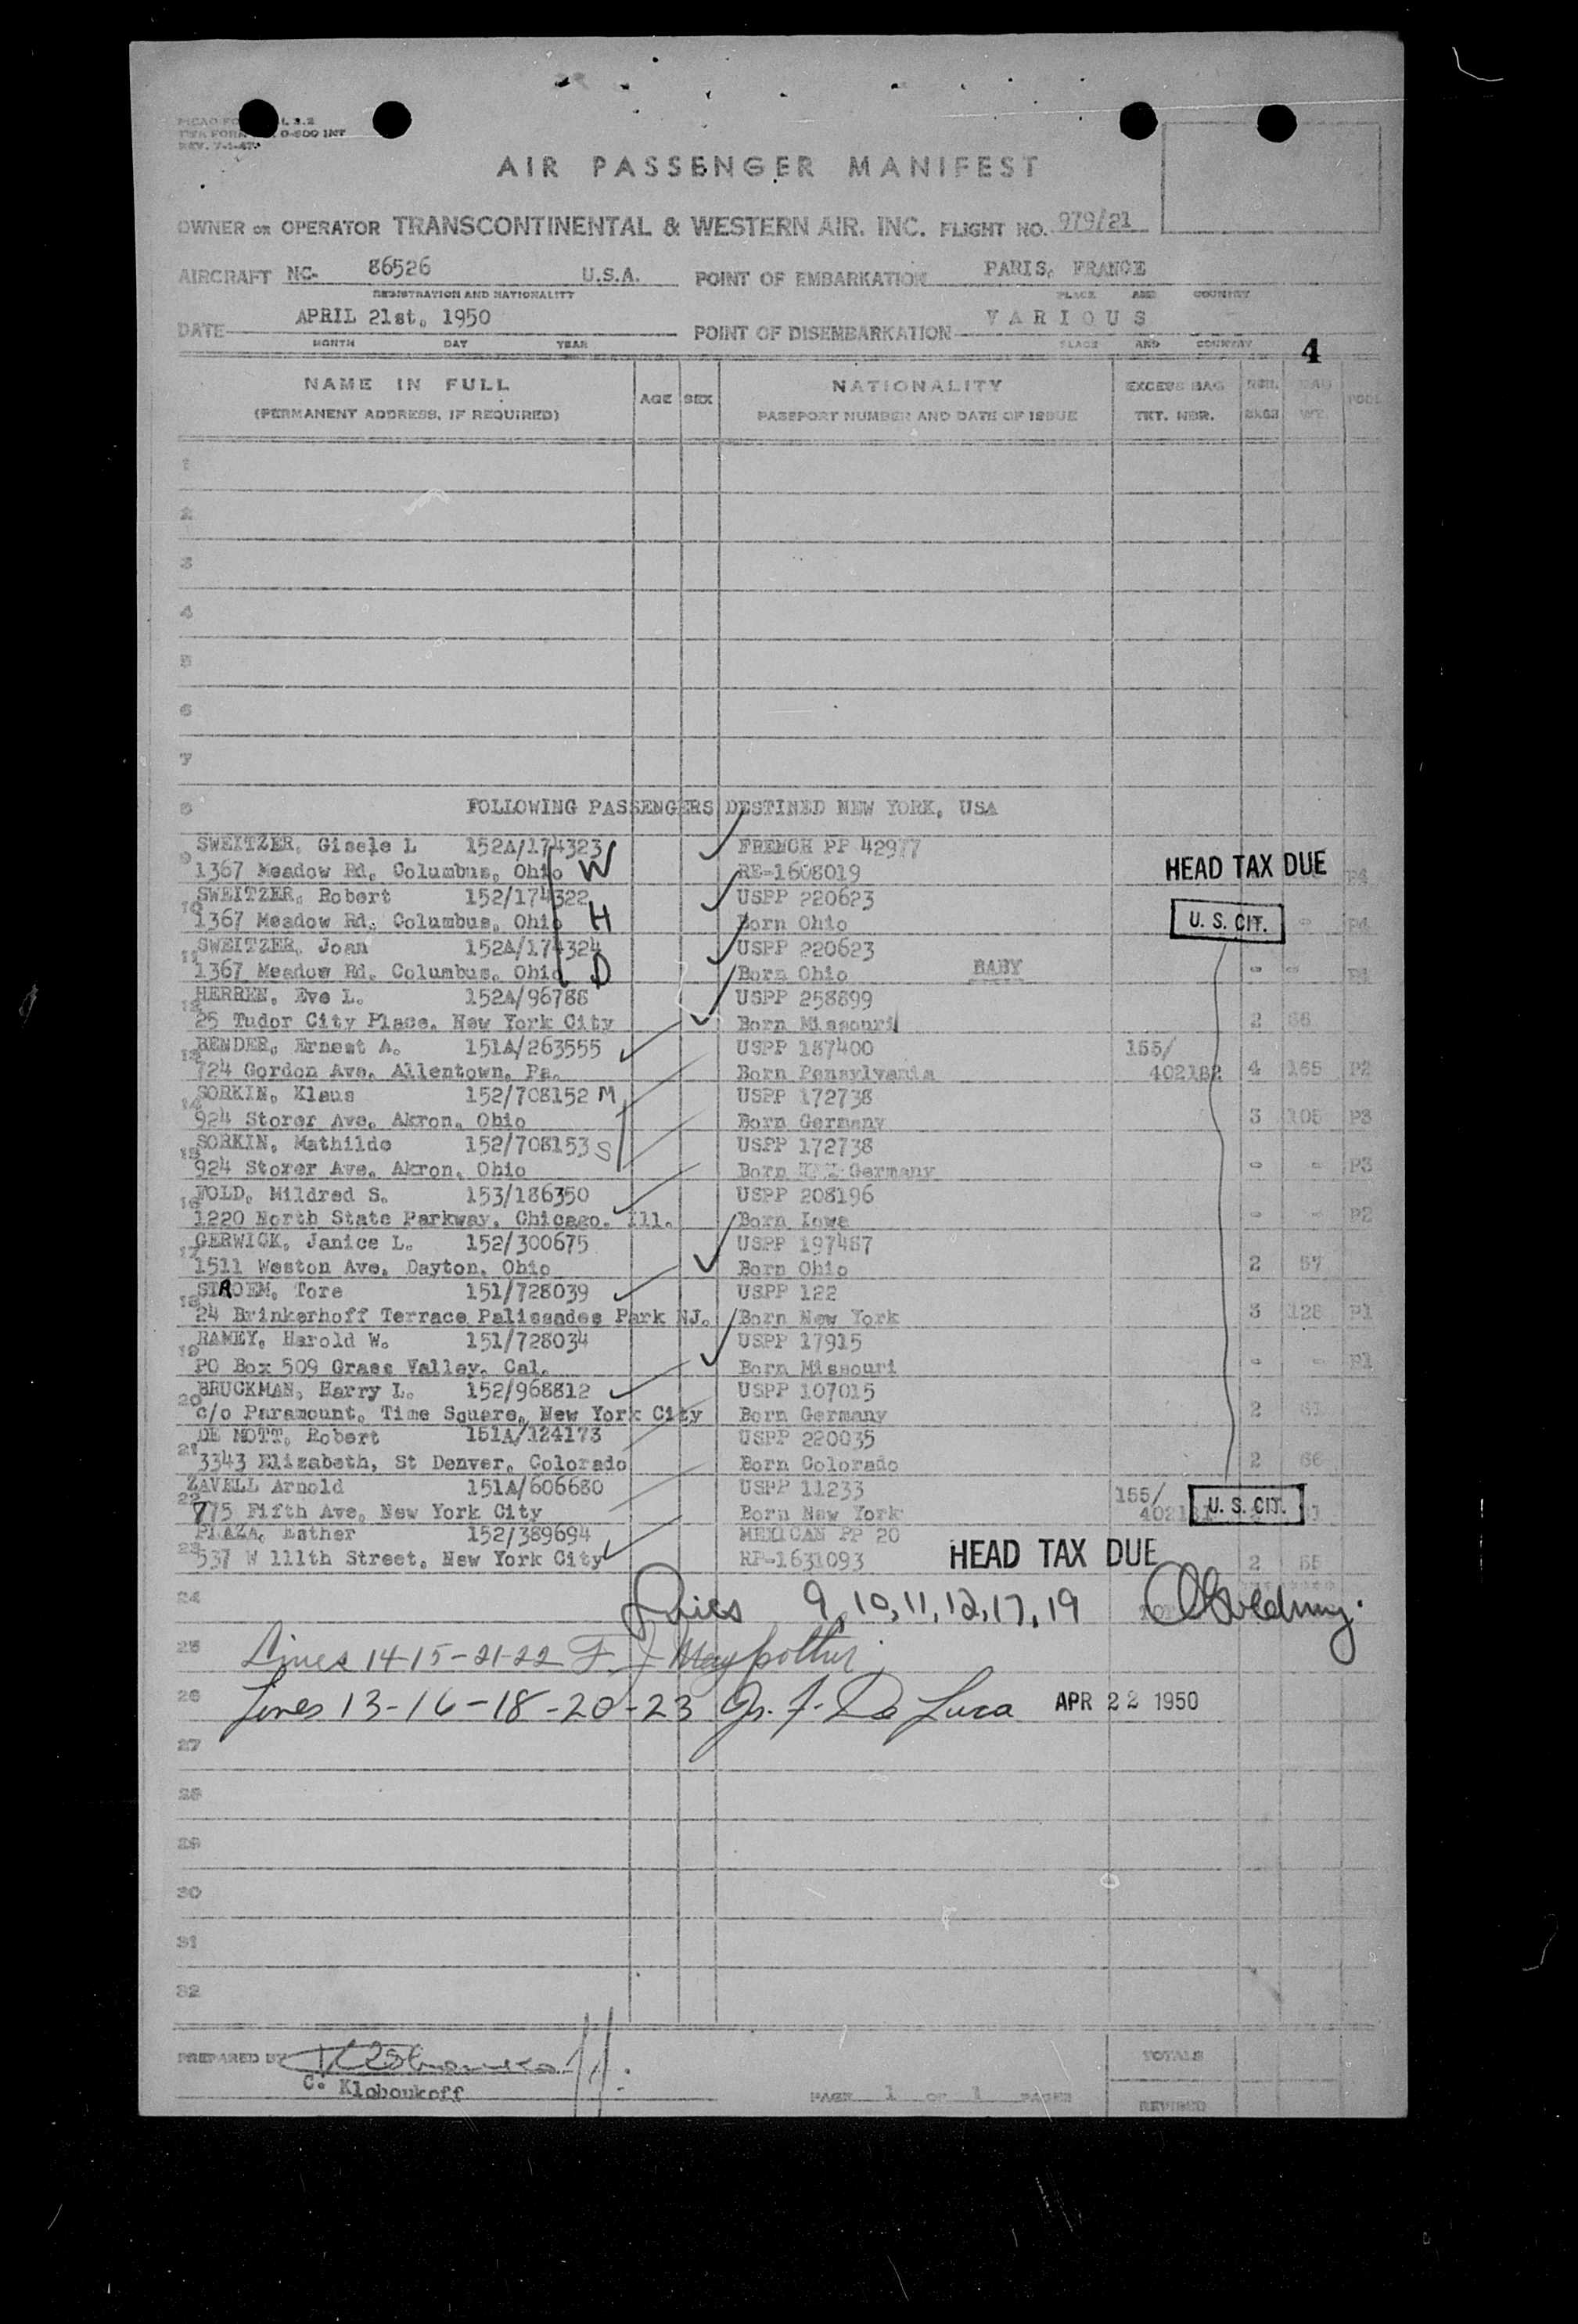 REV. 7-1-47
AIR PASSENGER MANIFEST
OWNER OR OPERATOR TRANSCONTINENTAL & WESTERN AIR, INC. FLIGHT NO. 979/21
AIRCRAFT NC- 86526 U.S.A. POINT OF EMBARKATION PARIS, FRANCE
REGISTRATION AND NATIONALITY PLACE AND COUNTRY
DATE APRIL 21st, 1950 POINT OF DISEMBARKATION VARIOUS
MONTH DAY YEAR PLACE AND COUNTRY
4
NAME IN FULL AGE SEX NATIONALITY EXCESS BAG
(PERMANENT ADDRESS, IF REQUIRED) PASSPORT NUMBER AND DATE OF ISSUE TKT. NBR. WT.
1
2
3
4
5
6
7
8 FOLLOWING PASSENGERS DESTINED NEW YORK, USA
9 SWEITZER, Gisele L 152A/174323 FRENCH PP 42977
1367 Meadow Rd, Columbus, Ohio W RE-1608019 HEAD TAX DUE P4
10 SWEITZER, Robert 152/174322 USPP 220623
1367 Meadow Rd, Columbus, Ohio H Born Ohio U. S. CIT. - P4
11 SWEITZER, Joan 152A/174324 USPP 220623
1367 Meadow Rd, Columbus, Ohio D Born Ohio BABY - - P4
12 HERREN, Eve L. 152A/96788 USPP 258899
25 Tudor City Place, New York City Born Missouri 2 66
13 BENDER, Ernest A. 151A/263555 USPP 187400 155/
724 Gordon Ave, Allentown, Pa. Born Pensylvania 402182 4 165 P2
14 SORKIN, Klaus 152/708152 M USPP 172738
924 Storer Ave, Akron, Ohio Born Germany 3 105 P3
15 SORKIN, Mathilde 152/708153 S USPP 172738
924 Storer Ave, Akron, Ohio Born Germany - - P3
16 FOLD, Mildred S. 153/186350 USPP 208196
1220 North State Parkway, Chicago, Ill. Born Iowa - - P2
17 GERWICK, Janice L. 152/300675 USPP 197487
1511 Weston Ave, Dayton, Ohio Born Ohio 2 57
18 STROEM, Tore 151/728039 USPP 122
24 Brinkerhoff Terrace Palissades Park NJ. Born New York 3 128 P1
19 RAMEY, Harold W. 151/728034 USPP 17915
PO Box 509 Grass Valley, Cal. Born Missouri - - P1
20 BRUCKMAN, Harry L. 152/968812 USPP 107015
c/o Paramount, Time Square, New York City Born Germany 2
21 DE MOTT, Robert 151A/124173 USPP 220035
3343 Elizabeth, St Denver, Colorado Born Colorado 2 66
22 ZAVELL Arnold 151A/606680 USPP 11233 155/
775 Fifth Ave, New York City Born New York U. S. CIT.
23 PLAZA, Esther 152/389694 MEXICAN PP 20
537 W 111th Street, New York City RP-1631093 HEAD TAX DUE 2
24 Lines 9,10,11,12,17,19
25 Lines 14-15-21-22 F. J.
26 Lines 13-16-18-20-23 De Luca APR 22 1950
27
28
29
30
31
32
PREPARED BY TOTALS
C. Kloboukoff PAGE 1 OF 1 PAGES
REVISED